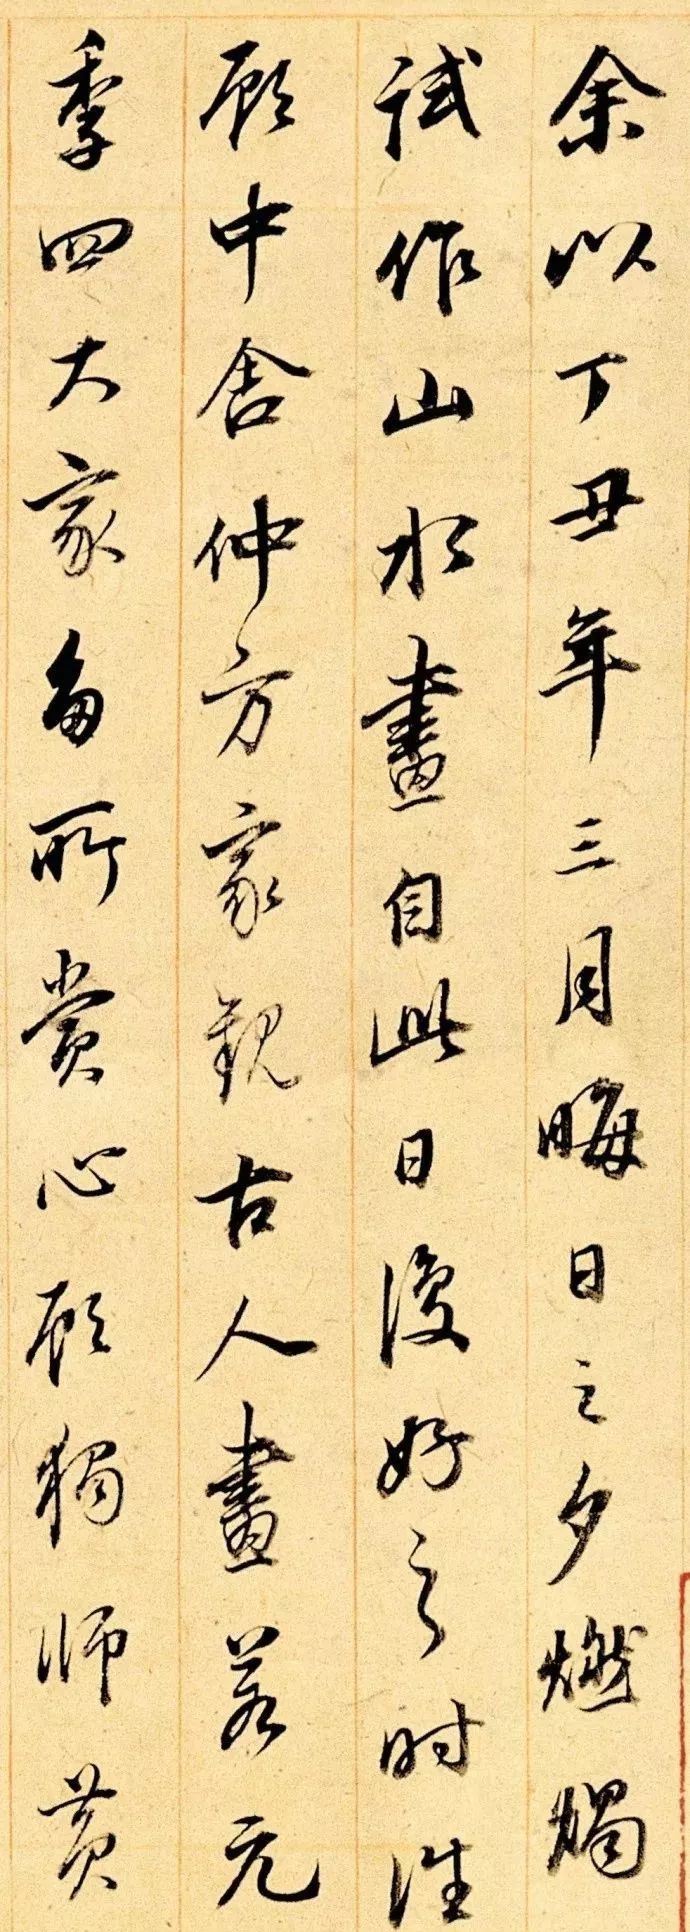 余以丁丑年三月晦日之夕燃燭
試作山水畫自此日復好之時往
顧中舍仲方家觀古人畫若元
季四大家多所賞心顧獨師黃